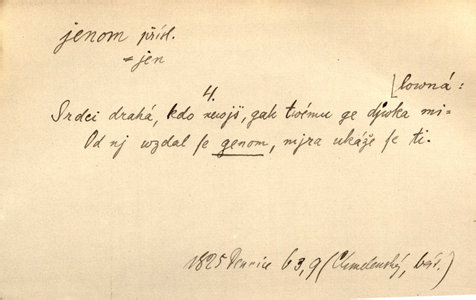 jenom přísl.
= jen
4.
[lowná:
Srdci drahá, kdo swogi, gak twému ge djwka mi=
Od nj wzdal ſe genom, mjra ukáže ſe ti.
1825 63,9 (Chmelenský, báš.)